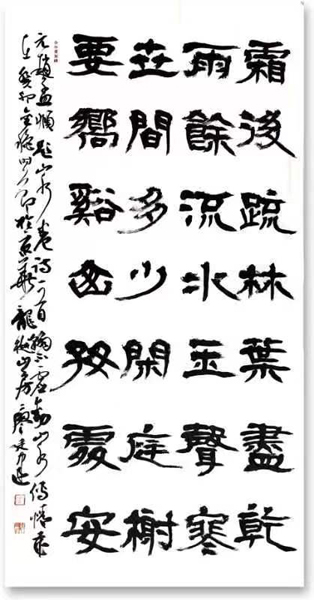 霜後疏林葉盡乾
雨餘流水玉聲寒
世間多少閑庭榭
要嚮谿山好處安
元趙孟頫題山水卷詩
癸卯金秋 於京華龍 山房廖